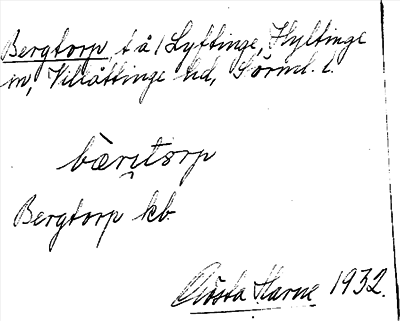 Bergtorp, t å / Lyftinge, Hyltinge
sn, Villåttinge hd, Sörml. l.
bæri̭tsɒrp
Bergtorp kb.
Gösta Harne 1932.